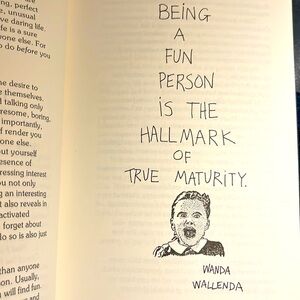 ing, perfect
e, unusual
ve daring life.
fe is a sure
one else. For
o do before you
e desire to
e themselves.
d talking only
resome, boring,
importantly,
of render you
one else.
out yourself
esence of
ressing interest
you not only
ng an interest
also reveals in
activated
forget about
lo so is also just
than anyone
son. Usually,
will find fun.
BEING
A
FUN
PERSON
IS THE
HALLMARK
OF
TRUE MATURITY.
WANDA
WALLENDA